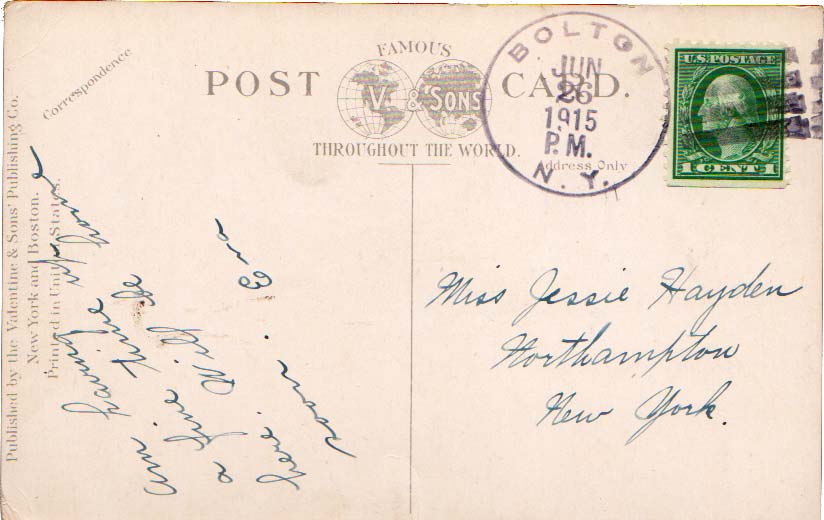 FAMOUS
POST CARD.
V. & SONS
THROUGHOUT THE WORLD.
Correspondence
Address Only
BOLTON
JUN
26
1915
P.M.
N. Y.
U.S. POSTAGE
1 CENT 1
Published by the Valentine & Sons' Publishing Co.
New York and Boston.
Printed in United States.
Am having
a fine time up
here. Will be home
soon. Eva
Miss Jessie Hayden
Northampton
New York.